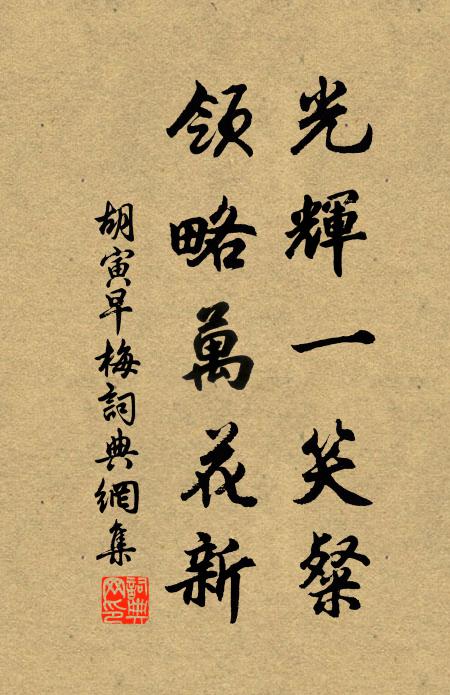 光輝一笑粲
領略萬花新
胡寅早梅詞典網集
詞典網印